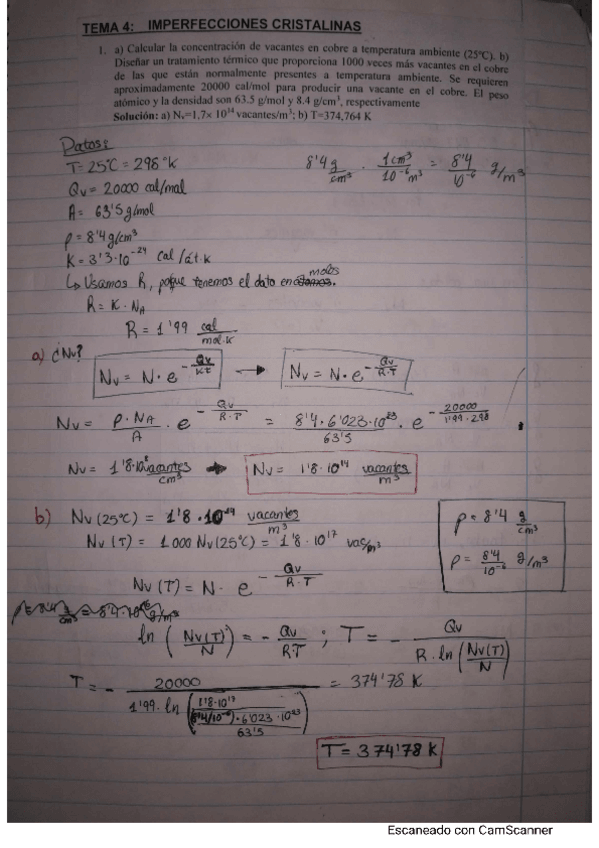 TEMA 4: IMPERFECCIONES CRISTALINAS
1. a) Calcular la concentración de vacantes en cobre a temperatura ambiente (25ºC). b)
Diseñar un tratamiento térmico que proporciona 1000 veces más vacantes en el cobre
de las que están normalmente presentes a temperatura ambiente. Se requieren
aproximadamente 20000 cal/mol para producir una vacante en el cobre. El peso
atómico y la densidad son 63.5 g/mol y 8.4 g/cm³, respectivamente
Solución: a) Nv=1,7× 10¹⁴ vacantes/m³; b) T=374,764 K
Datos:
T = 25ºC = 298 ºK
8'4 g/cm³ · 1cm³/10⁻⁶m³ = 8'4/10⁻⁶ g/m³
Qv = 20000 cal/mol
A = 63'5 g/mol
ρ = 8'4 g/cm³
K = 3'3·10⁻²⁴ cal/át·k
↳ Usamos R, porque tenemos el dato en moles
R = K · NA
R = 1'99 cal/mol·K
a) ¿Nv?
Nv = N · e^(-Qv/Kt) → Nv = N · e^(-Qv/R·T)
Nv = ρ·NA/A · e^(-Qv/R·T) = 8'4 · 6'023·10²³/63'5 · e^(-20000/1'99·298)
Nv = 1'8·10⁸ vacantes/cm³ → Nv = 1'8·10¹⁴ vacantes/m³
b) Nv (25ºC) = 1'8·10¹⁴ vacantes/m³
Nv (T) = 1000 Nv (25ºC) = 1'8·10¹⁷ vac/m³
ρ = 8'4 g/cm³
ρ = 8'4/10⁻⁶ g/m³
Nv (T) = N · e^(-Qv/R·T)
ln (Nv(T)/N) = - Qv/RT ; T = - Qv/(R·ln (Nv(T)/N))
T = - 20000/(1'99·ln (1'8·10¹⁷/((8'4/10⁻⁶)·6'023·10²³/63'5))) = 374'78 K
T = 374'78 K
Escaneado con CamScanner